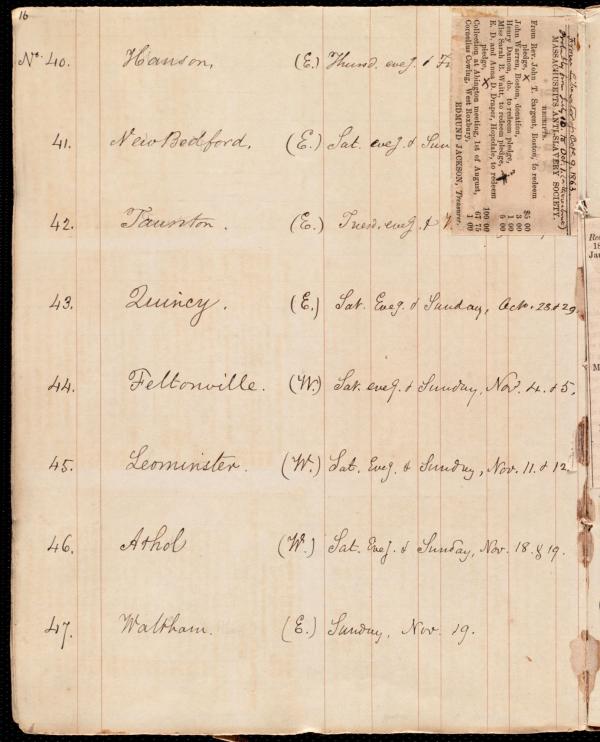 16
No. 40. Hanson, (E.) Thursd. eveg. &
41. New Bedford, (E.) Sat. eveg. & Sun
42. Taunton. (E.) Tuesd. eveg. &
43. Quincy. (E.) Sat. Eveg. & Sunday, Octr. 28 & 29.
44. Feltonville. (W.) Sat. eveg. & Sunday, Nov. 4. & 5.
45. Leominster. (W.) Sat. Eveg. & Sunday, Nov. 11. & 12.
46. Athol (W.) Sat. Eveg. & Sunday, Nov. 18. & 19.
47. Waltham. (E.) Sunday, Nov. 19.
From Liberator of Oct. 9, 1863.
MASSACHUSETTS ANTI-SLAVERY SOCIETY.
From Rev. John T. Sargent, Boston, to redeem
pledge, X $5 00
John Warren, Boston, donation, 3 00
Henry Damon, do. to redeem pledge, 1 00
Miss Sarah E. Wall, to redeem pledge, X 5 00
E. D. and Anna D. Draper, Hopedale, to redeem
pledge, X 100 00
Collection at Abington meeting, 1st of August, 67 75
Cornelius Cowing, West Roxbury, 1 00
EDMUND JACKSON, Treasurer.